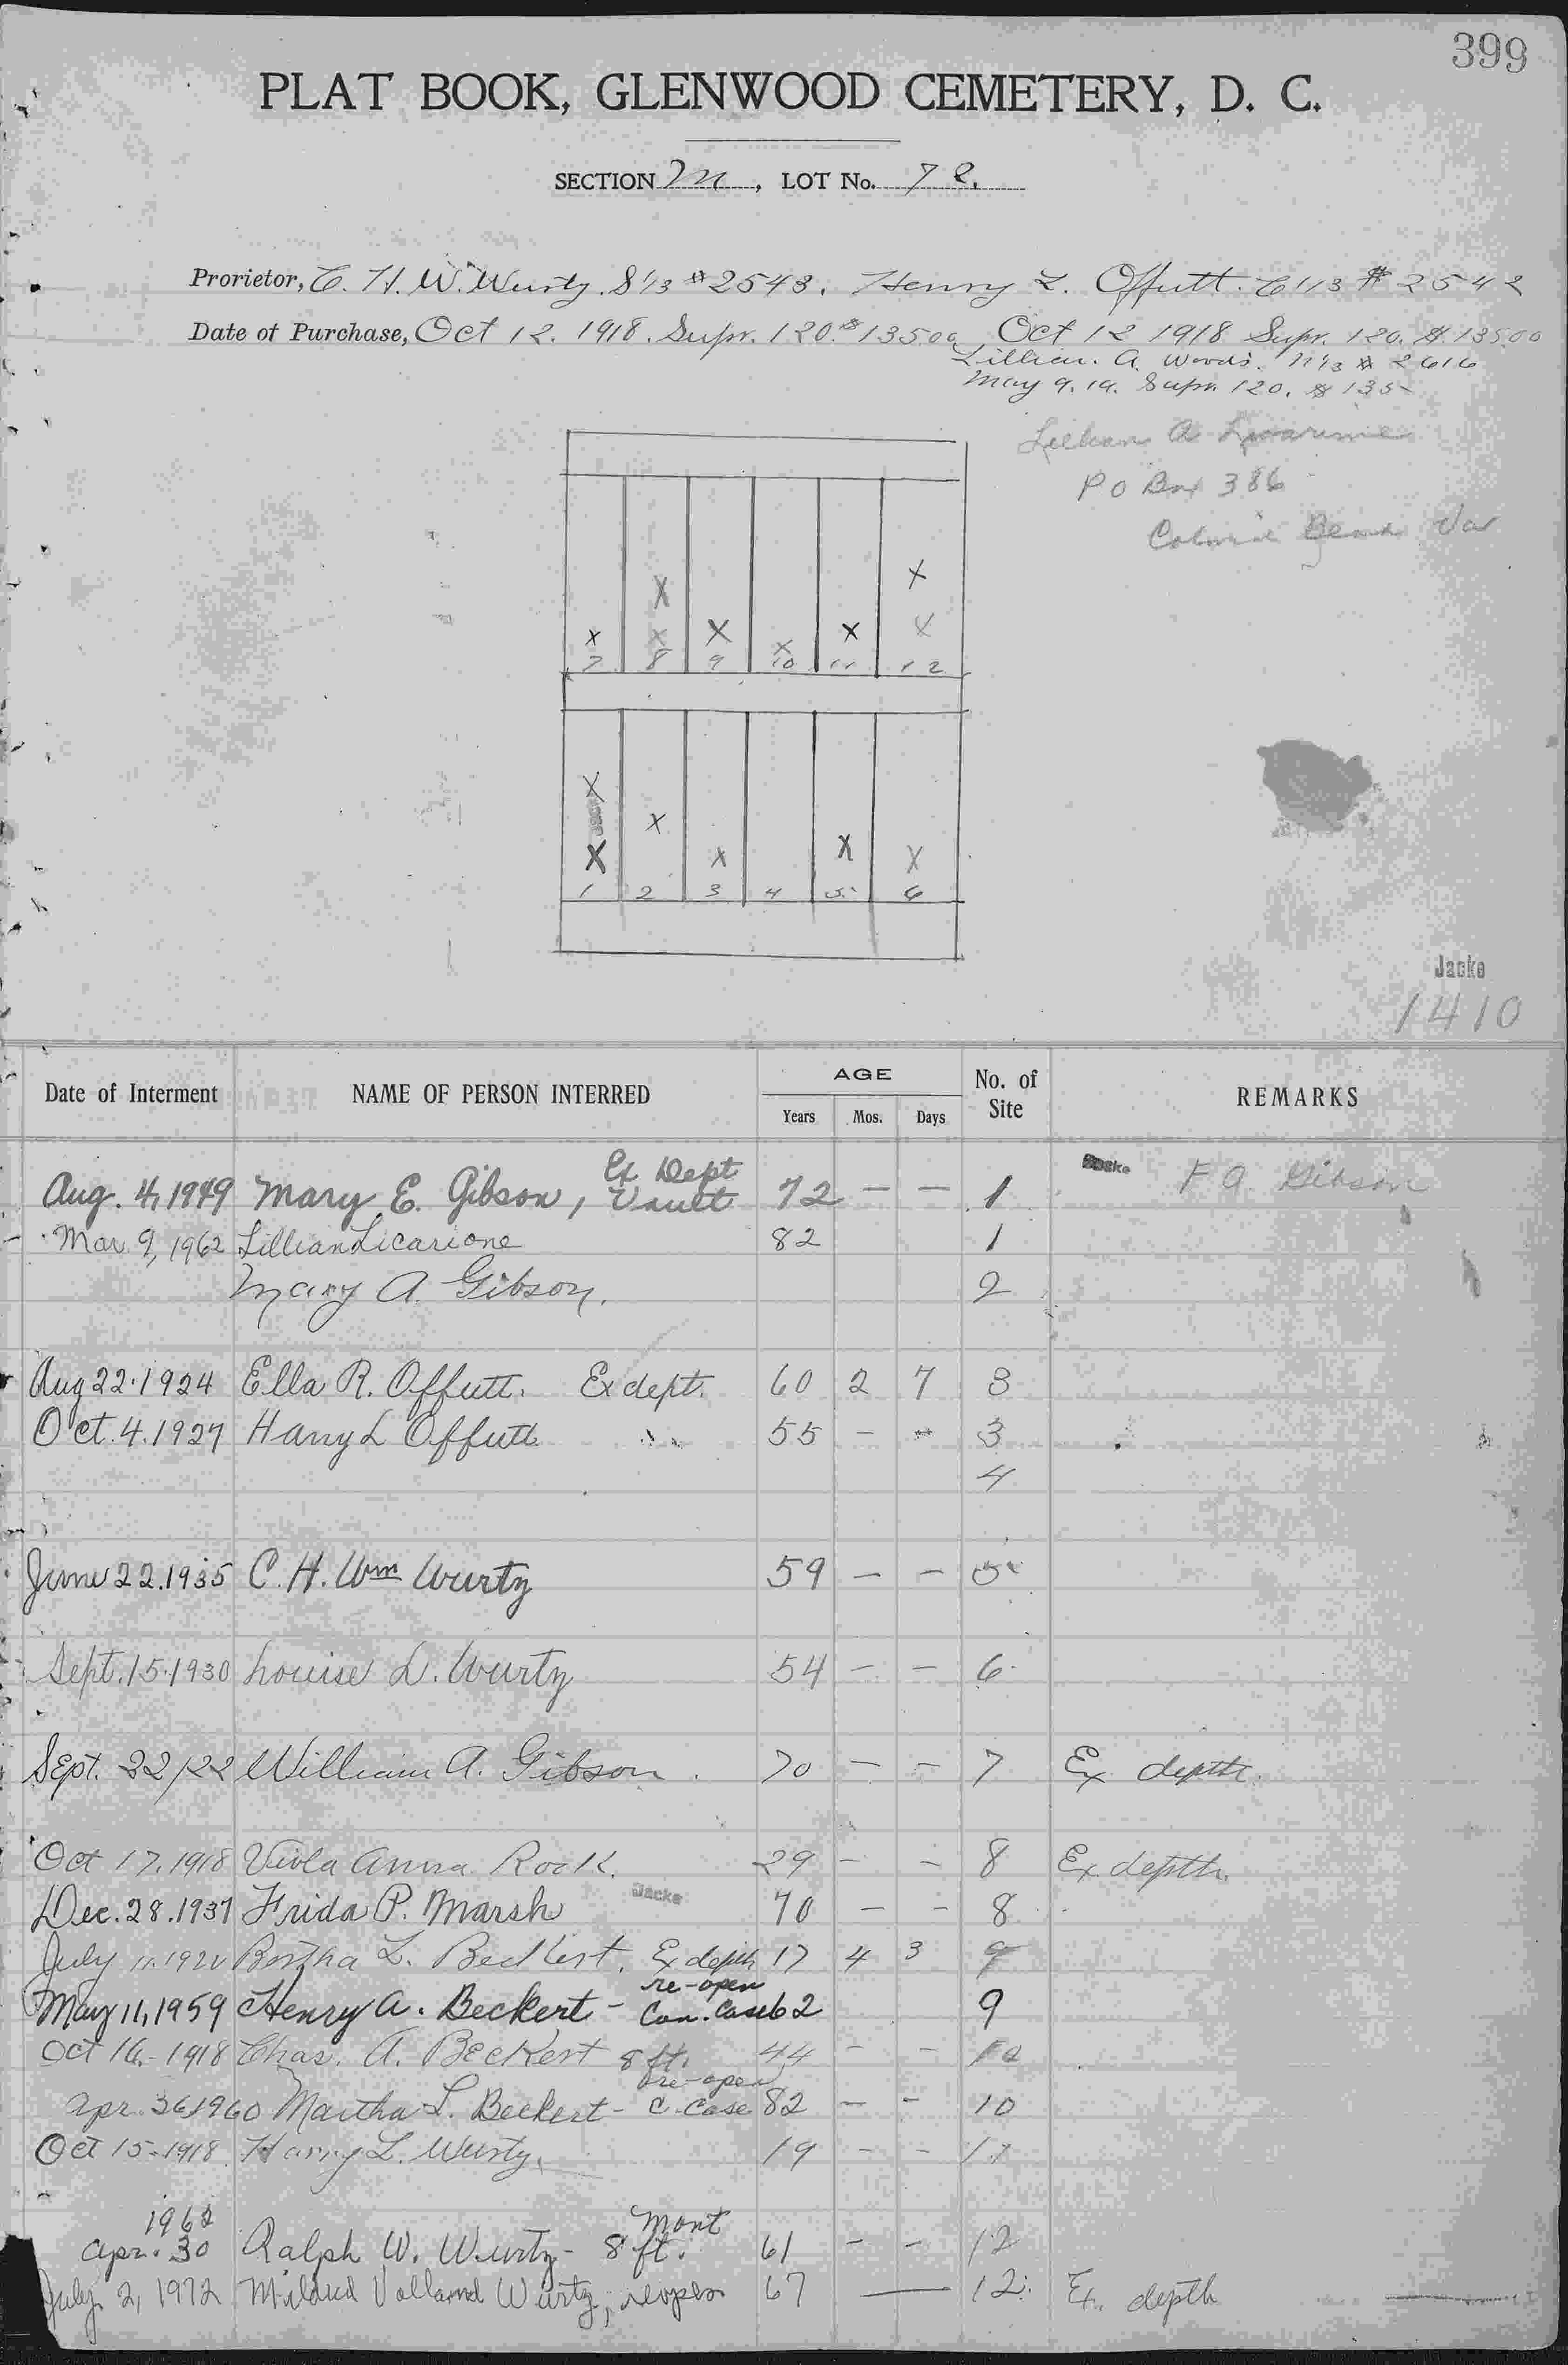 399
PLAT BOOK, GLENWOOD CEMETERY, D. C.
SECTION M, LOT No. 72.
Prorietor, C. H. W. Wurtz. S 1/3 # 2543. Henry L. Offutt. C 1/3 # 2542
Date of Purchase, Oct 12. 1918. Supr. 120. $135.00 Oct 12 1918 Supr. 120. $.135.00
Lillian. A. Woods. N 1/3 # 2616
May 9. 19. Supr. 120. $135-
Lillian A
P O Box 386
Beach Va
7 8 9 10 11 12
1 2 3 4 5 6
Jacke
1410
Date of Interment NAME OF PERSON INTERRED AGE No. of Site REMARKS
Years Mos. Days
Aug. 4, 1949 Mary E. Gibson, Ex Dept Vault 72 — — 1 F A. Gibson
Mar. 9, 1962 Lillian Licarione 82 1
Mary A. Gibson. 2
Aug 22. 1924 Ella R. Offutt. Ex dept. 60 2 7 3
Oct. 4. 1927 Harry L Offutt " " 55 — — 3
4
June 22. 1935 C. H. Wm Wurtz 59 — — 5
Sept. 15. 1930 Louise L. Wurtz 54 — — 6
Sept. 22/22 William A. Gibson. 70 — — 7 Ex depth.
Oct 17. 1918 Viola Anna Rock. 29 — — 8 Ex depth.
Dec. 28. 1937 Frida P. Marsh Jacke 70 — — 8
July 11. 1920 Bertha L. Beckert. Ex depth 17 4 3 9
May 11, 1959 Henry A. Beckert - re-open Con. Case 62 9
Oct 16.- 1918 Chas. A. Beckert 8 ft. 44 — — 10
Apr. 26, 1960 Martha L. Beckert - re-open C. Case 82 — — 10
Oct 15 - 1918. Harry L. Wurtz. 19 — — 11
1962
Apr. 30 Ralph W. Wurtz - 8 ft. Mont 61 — — 12
July 2, 1972 Mildred Volland Wurtz, reopen 67 — 12. Ex. depth